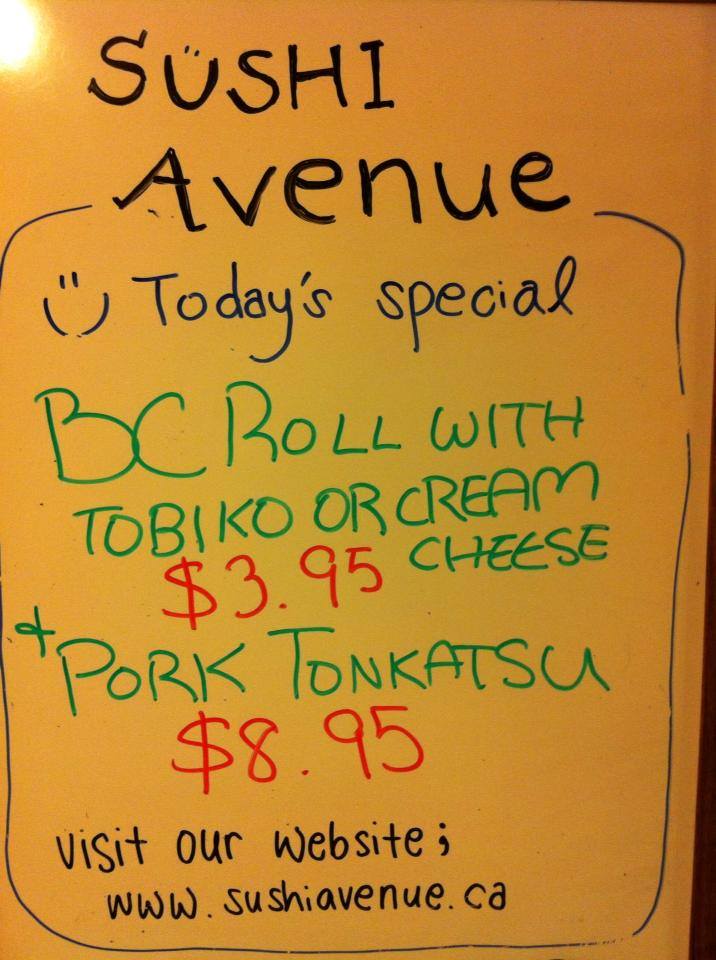 SÜSHI
Avenue
Today's special
BC ROLL WITH
TOBIKO OR CREAM
CHEESE
$3.95
+ PORK TONKATSU
$8.95
visit our website;
www.sushiavenue.ca